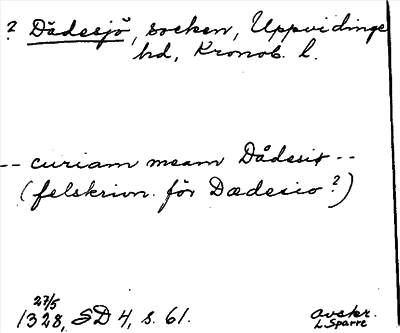 ? Dädesjö, socken, Uppvidinge
hd, Kronob. l.
-- curiam meam Dådesix --
(felskrivn. för Dædesio?)
27/5
1328, SD 4, s. 61.
avskr.
L. Sparre